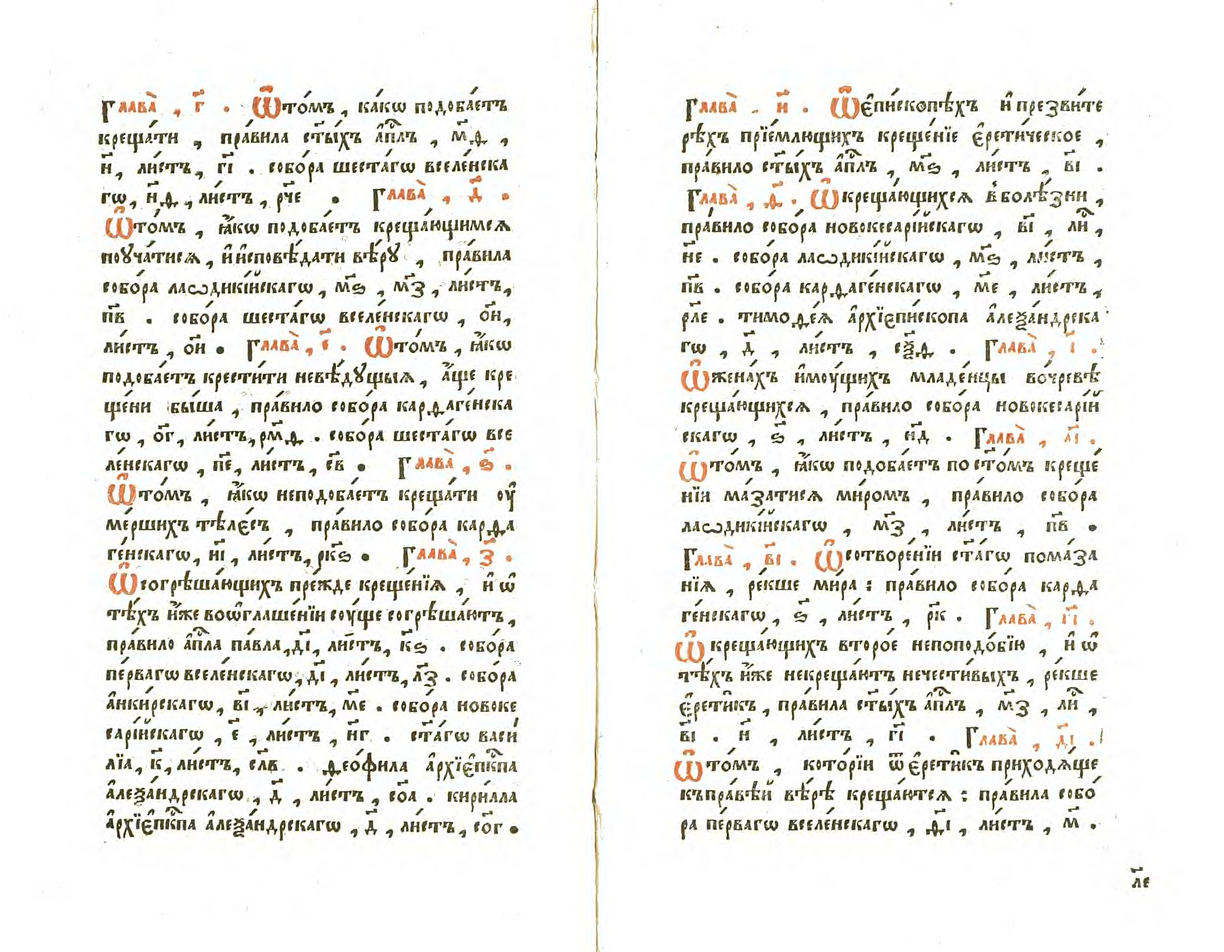 Глава̀ , г҃ . Ѿто́мъ , ка́кѡ подоба́етъ
креща́ти , пра́вила ст҃ы́хъ а҆пⷭ҇лъ , м҃ѳ ,
н҃ , ли́стъ , г҃і . собо́ра шеста́гѡ вселе́нска
гѡ , н҃ѳ , ли́стъ , р҃че . Глава̀ , д҃ .
Ѿто́мъ , ꙗ҆́кѡ подоба́етъ креща́ющимсѧ
поуча́тисѧ , и҆и҆сповѣ́дати вѣ́рꙋ , пра́вила
собо́ра лаѡдикі́йскагѡ , м҃ѕ , м҃з , ли́стъ ,
п҃в . собо́ра шеста́гѡ вселе́нскагѡ , о҃и ,
ли́стъ , о҃и . Глава̀ , е҃ . Ѿто́мъ , ꙗ҆́кѡ
подоба́етъ крести́ти невѣ́дꙋщыѧ , а҆́ще кре
ще́ни бы́ша , пра́вило собо́ра карѳаге́нска
гѡ , о҃г , ли́стъ , рм҃ѳ . собо́ра шеста́гѡ все
ле́нскагѡ , п҃е , ли́стъ , с҃в . Глава̀ , ѕ҃ .
Ѿто́мъ , ꙗ҆́кѡ неподоба́етъ креща́ти оу҆
ме́рших тѣле́съ , пра́вило собо́ра карѳа
ге́нскагѡ , н҃і , ли́стъ , рк҃ѕ . Глава̀ , з҃ .
Ѿсогрѣша́ющихъ пре́жде креще́нїѧ , и҆ ѡ҆
тѣ́хъ и҆́же воѡ҆глаше́нїи со́уще согрѣша́ютъ ,
пра́вило а҆пⷭ҇ла па́вла , д҃і , ли́стъ , к҃ѕ . собо́ра
пе́рвагѡ вселе́нскагѡ , д҃і , ли́стъ , л҃з . собо́ра
а҆нки́рскагѡ , в҃і , ли́стъ , м҃е . собо́ра новоке
сарі́йскагѡ , е҃ , ли́стъ , н҃г . ст҃а́гѡ васи́
лїа , к҃ , ли́стъ , сл҃в . ѳео́фила а҆рхїе҆пⷭ҇кпа
а҆леѯа́ндрскагѡ , д҃ , ли́стъ , со҃а . кири́лла
а҆рхїе҆пⷭ҇кпа а҆леѯа́ндрскагѡ , д҃ , ли́стъ , со҃г .
Глава̀ , и҃ . Ѿе҆пи́скопѣхъ и҆ презви́те
рѣхъ прїе́млющихъ креще́нїе е҆рети́ческое ,
пра́вило ст҃ы́хъ а҆пⷭ҇лъ , м҃ѕ , ли́стъ , в҃і .
Глава̀ , ѳ҃ . Ѿкреща́ющихсѧ в҆болѣ́зни ,
пра́вило собо́ра новокесарі́йскагѡ , в҃і , лиⷭ҇ ,
н҃е . собо́ра лаѡдикі́йскагѡ , м҃ѕ , ли́стъ ,
п҃в . собо́ра карѳаге́нскагѡ , м҃е , ли́стъ ,
рл҃е . тимоѳе́ѧ а҆рхїепи́скопа а҆леѯа́ндрска
гѡ , д҃ , ли́стъ , сѯ҃ѳ . Глава̀ , і҃ .
Ѿжена́хъ и҆моу́щихъ младе́нцы во́чревѣ
креща́ющихсѧ , пра́вило собо́ра новокесарі́й
скагѡ , ѕ҃ , ли́стъ , н҃д . Глава̀ , а҃і .
Ѿто́мъ , ꙗ҆́кѡ подоба́етъ посто́мъ креще́
нїи ма́затисѧ ми́ромъ , пра́вило собо́ра
лаѡдикі́йскагѡ , м҃з , ли́стъ , п҃в .
Глава̀ , в҃і . Ѿсотворе́нїи ст҃а́гѡ пома́за
нїѧ , ре́кше ми́ра : пра́вило собо́ра карѳа
ге́нскагѡ , ѕ҃ , ли́стъ , р҃к . Глава̀ , г҃і .
Ѿ креща́ющихъ второ́е неподо́бїю , и҆ ѡ҆
тѣ́хъ и҆́же некреща́ютъ нечести́выхъ , ре́кше
е҆рети́къ , пра́вила ст҃ы́хъ а҆пⷭ҇лъ , м҃з , лиⷭ҇ ,
в҃і . н҃ , ли́стъ , г҃і . Глава̀ , д҃і .
Ѿто́мъ , кото́рїи ѿ е҆рети́къ приходѧ́ще
къпра́вѣй вѣ́рѣ креща́ютсѧ : пра́вила собо́
ра пе́рвагѡ вселе́нскагѡ , ѳ҃і , ли́стъ , м҃ .
л҃е